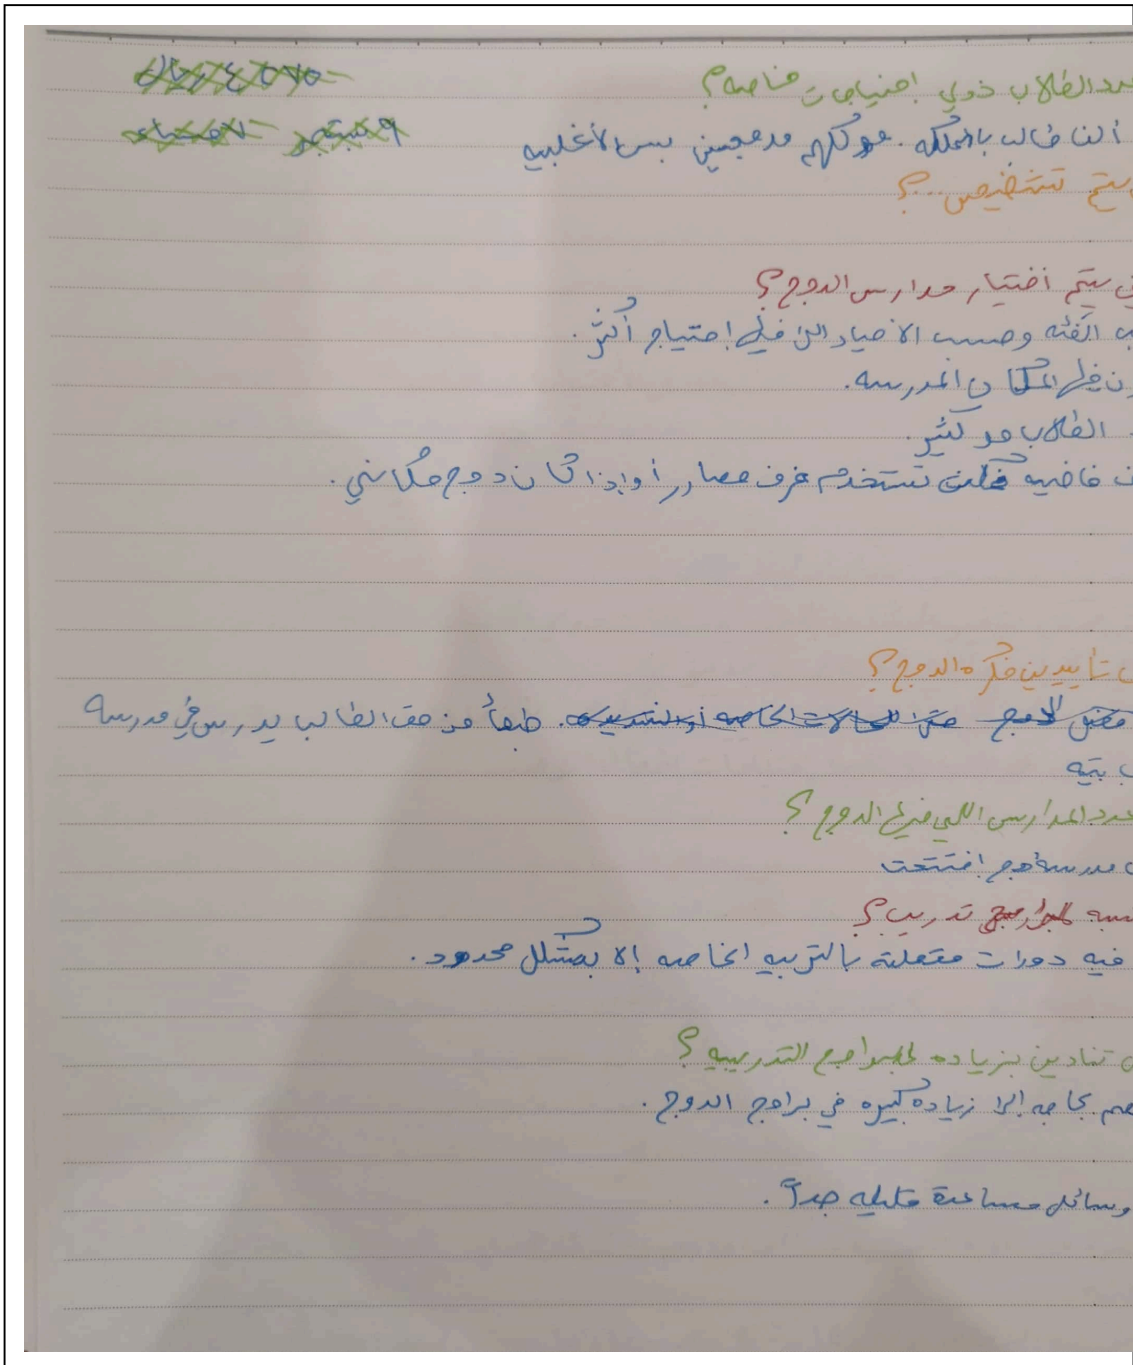 عدد الطلاب ذوي احتياجات خاصه؟
ألف طالب بالمملكه. مو كلهم مدمجين بس الأغلبيه
يتم تشخيص...؟
يتم اختيار مدارس الدمج؟
الفئه وحسب الاحياء الي فيها احتياج أكثر.
فيها المكان المدرسه.
الطلاب مو كثير.
فاضيه تستخدم غرف مصادر أو إذا كان دمج مكاني.
تأييدين فكره الدمج؟
حتى للحالات الخاصه أو الشديده. طبعاً من حق الطالب يدرس في مدرسه
بيته
عدد المدارس اللي فيها الدمج؟
مدرسة دمج افتتحت
تدريب؟
فيه دورات متعلقة بالتربيه الخاصه إلا بشكل محدود.
تنادين بزياده البرامج التدريبيه؟
بحاجه إلى زياده كبيره في برامج الدمج.
وسائل مساعدة قليله جداً.